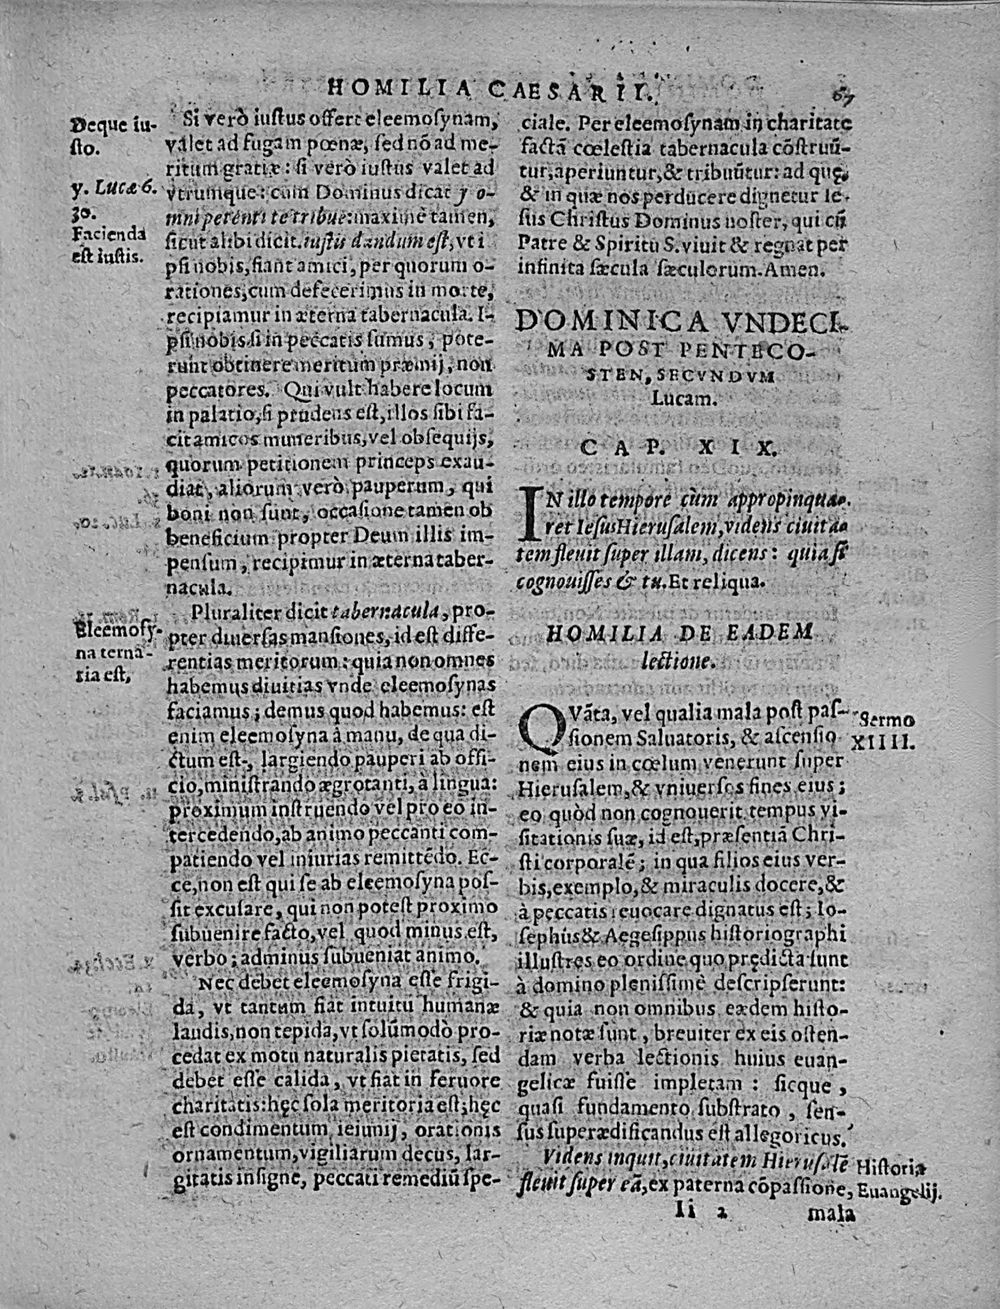 HOMILIA CAESARII. 67
Deque iu-
sto.
y. Lucæ 6.
30.
Facienda
est iustis.
Eleemosy-
na terna-
ria est,
Si verò iustus offert eleemosynam,
valet ad fugam pœnæ, sed nõ ad me-
ritum gratiæ: si verò iustus valet ad
vtrumque: cum Dominus dicat y o-
mni petenti te tribue: maximè tamen,
sicut alibi dicit. iustis dandum est, vt i
psi nobis, fiant amici, per quorum o-
rationes, cum defecerimus in morte,
recipiamur in æterna tabernacula. I-
psi nobis, si in peccatis sumus, pote-
runt obtinere meritum præmij, non
peccatores. Qui vult habere locum
in palatio, si prudens est, illos sibi fa-
cit amicos muneribus, vel obsequijs,
quorum petitionem princeps exau-
diat, aliorum verò pauperum, qui
boni non sunt, occasione tamen ob
beneficium propter Deum illis im-
pensum, recipimur in æterna taber-
nacula.
Pluraliter dicit tabernacula, pro-
pter diuersas mansiones, id est diffe-
rentias meritorum: quia non omnes
habemus diuitias vnde eleemosynas
faciamus; demus quod habemus: est
enim eleemosyna à manu, de qua di-
ctum est, largiendo pauperi ab offi-
cio, ministrando ægrotanti, à lingua:
proximum instruendo vel pro eo in-
tercedendo, ab animo peccanti com-
patiendo vel iniurias remittẽdo. Ec-
ce, non est qui se ab eleemosyna pos-
sit excusare, qui non potest proximo
subuenire facto, vel quod minus est,
verbo; adminus subueniat animo.
Nec debet eleemosyna esse frigi-
da, vt tantum fiat intuitu humanæ
laudis, non tepida, vt solũmodò pro-
cedat ex motu naturalis pietatis, sed
debet esse calida, vt fiat in feruore
charitatis: hęc sola meritoria est; hęc
est condimentum ieiunij, orationis
ornamentum, vigiliarum decus, lar-
gitatis insigne, peccati remediũ spe-
ciale. Per eleemosynam in charitate
factã cœlestia tabernacula cõstruũ-
tur, aperiuntur, & tribuũtur: ad quę,
& in quæ nos perducere dignetur Ie-
sus Christus Dominus noster, qui cũ
Patre & Spiritu S. viuit & regnat per
infinita sæcula sæculorum. Amen.
DOMINICA VNDECI-
MA POST PENTECO-
STEN, SECVNDVM
Lucam.
CAP. XIX.
IN illo tempore cùm appropinqua-
ret Iesus Hierusalem, videns ciuita-
tem fleuit super illam, dicens: quia si
cognouisses & tu. Et reliqua.
HOMILIA DE EADEM
lectione.
QVãta, vel qualia mala post pas-
sionem Saluatoris, & ascensio
nem eius in cœlum venerunt super
Hierusalem, & vniuersos fines eius;
eo quòd non cognouerit tempus vi-
sitationis suæ, id est, præsentiã Chri-
sti corporalẽ; in qua filios eius ver-
bis, exemplo, & miraculis docere, &
à peccatis reuocare dignatus est; Io-
sephus & Aegesippus historiographi
illustres eo ordine quo prędicta sunt
à domino plenissimè descripserunt:
& quia non omnibus eædem histo-
riæ notæ sunt, breuiter ex eis osten-
dam verba lectionis huius euan-
gelicæ fuisse impletam: sicque,
quasi fundamento substrato, sen-
sus superædificandus est allegoricus.
Videns inquit, ciuitatem Hierusalẽ
fleuit super eã, ex paterna cõpassione,
Sermo
XIIII.
Historia
Euangelij.
Ii 2 mala